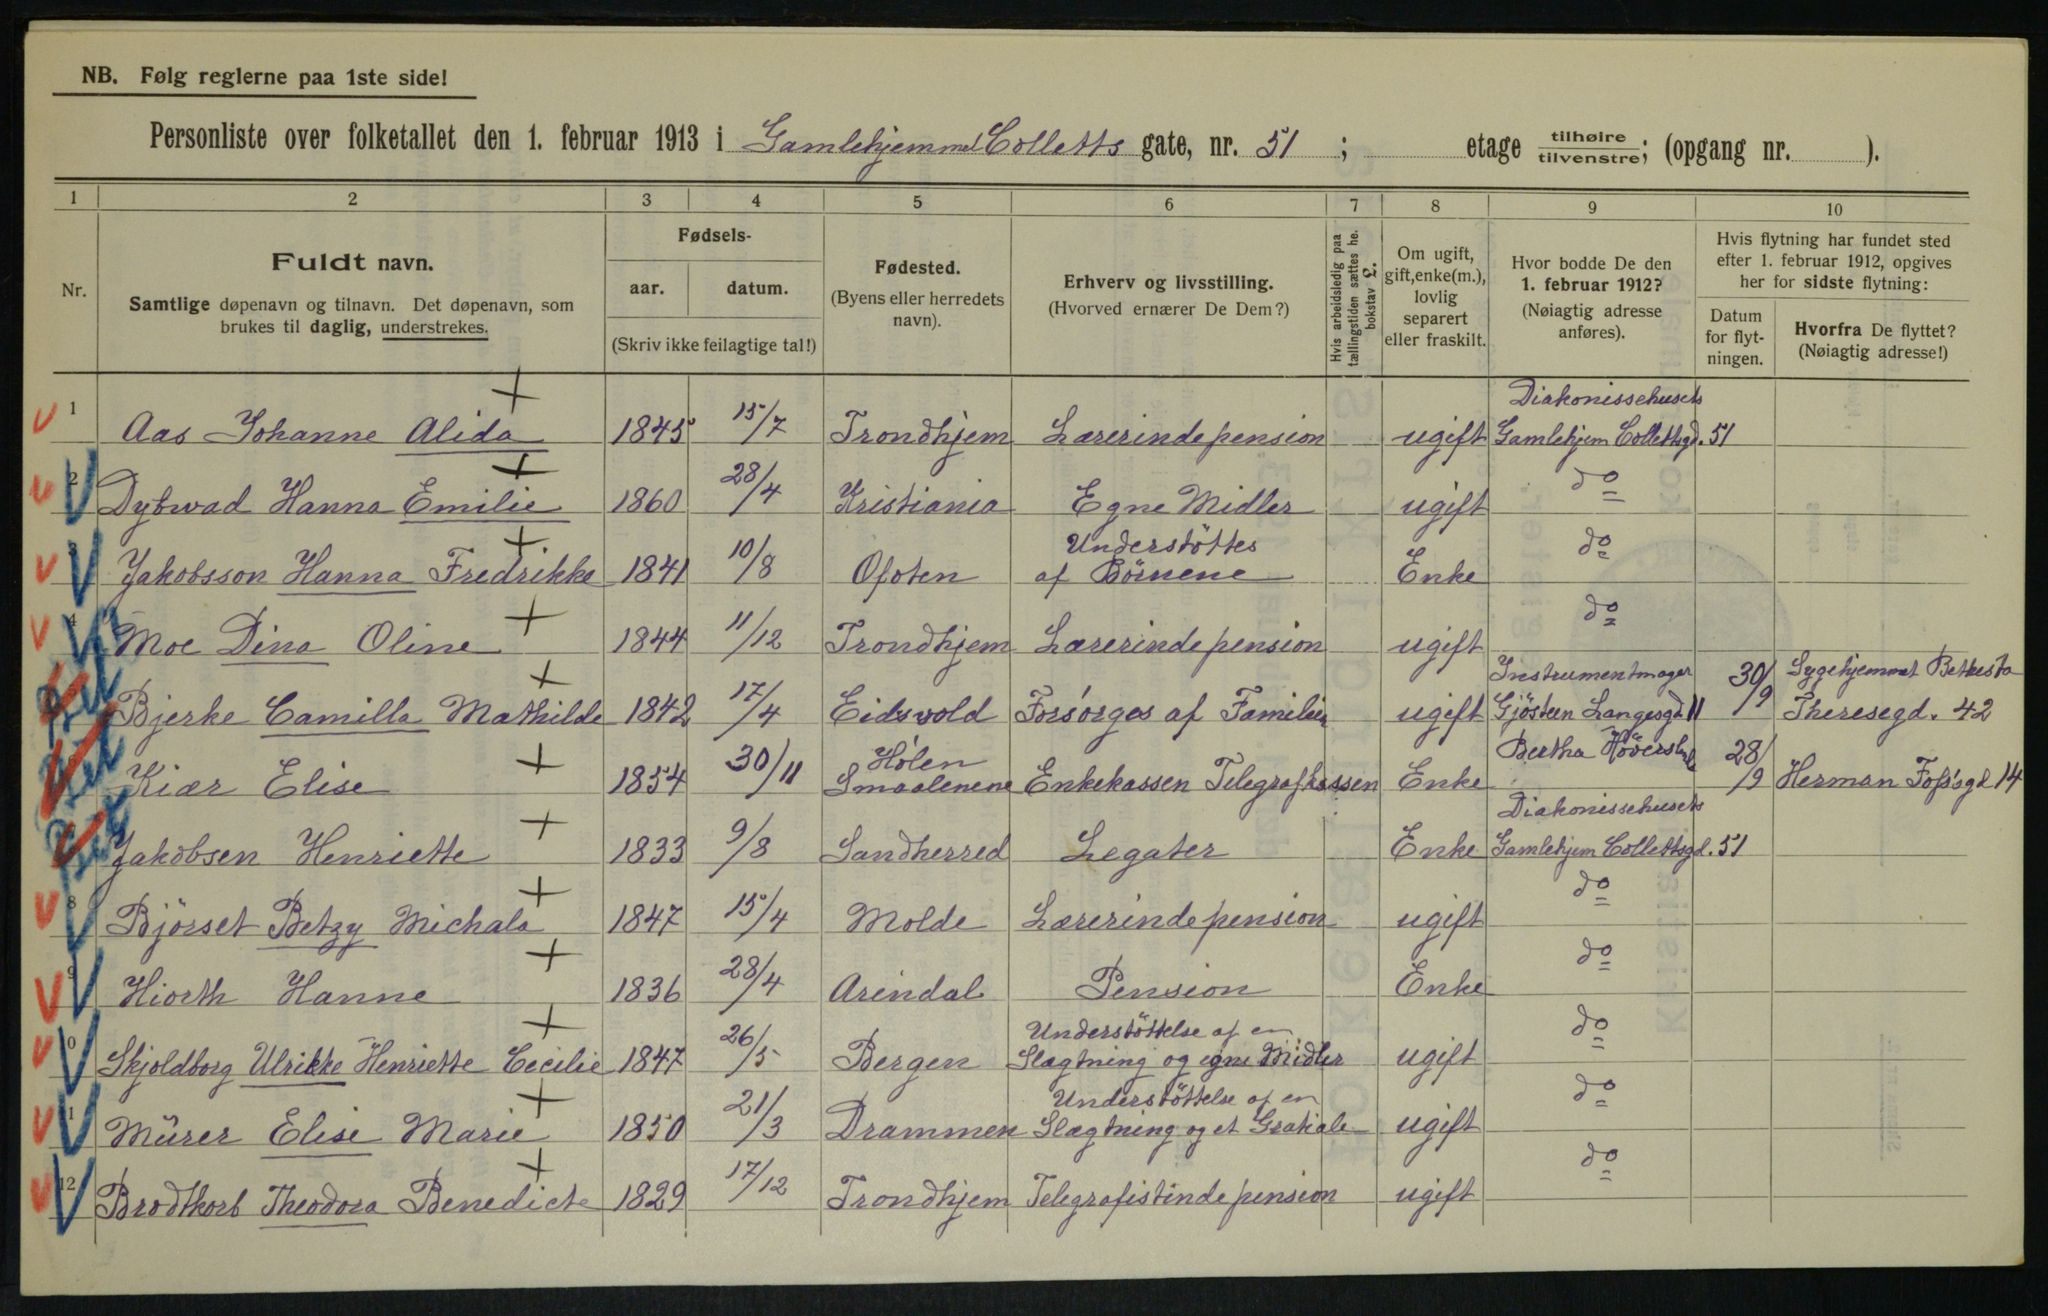 NB. Følg reglerne paa 1ste side!
Personliste over folketallet den 1. februar 1913 i Gamlehjemmet Colletts gate, nr. 51 ; etage tilhøire tilvenstre; (opgang nr. ).
1 2 3 4 5 6 7 8 9 10
Nr.
Fuldt navn.
Samtlige døpenavn og tilnavn. Det døpenavn, som
brukes til daglig, understrekes.
Fødsels-
aar. datum.
(Skriv ikke feilagtige tal!)
Fødested.
(Byens eller herredets
navn).
Erhverv og livsstilling.
(Hvorved ernærer De Dem?)
Hvis arbeidsledig paa
tællingstiden sættes he.
bokstav L.
Om ugift,
gift, enke(m.),
lovlig
separert
eller fraskilt.
Hvor bodde De den
1. februar 1912?
(Nøiagtig adresse
anføres).
Hvis flytning har fundet sted
efter 1. februar 1912, opgives
her for sidste flytning:
Datum
for flyt-
ningen.
Hvorfra De flyttet?
(Nøiagtig adresse!)
1 Aas Johanne Alida 1845 15/7 Trondhjem Lærerindepension ugift Diakonissehusets Gamlehjem Collettsgd. 51
2 Dybwad Hanna Emilie 1860 28/4 Kristiania Egne Midler ugift do
3 Jakobsson Hanna Fredrikke 1841 10/8 Ofoten Understöttes af Börnene Enke do
4 Moe Dina Oline 1844 11/12 Trondhjem Lærerindepension ugift do
Bjerke Camilla Mathilde 1842 17/4 Eidsvold Forsörges af Familien ugift Instrumentmager Gjösteen Langesgd 11 30/9 Sygehjemmet Betkesta Theresegd. 42
Kiær Elise 1854 30/11 Hölen Smaalenene Enkekassen Telegrafkassen Enke Bertha 28/9 Herman Foss'gd 14
Jakobsen Henriette 1833 9/8 Sandherred Legater Enke Diakonissehusets Gamlehjem Collettsgd. 51
8 Björset Betzy Michala 1847 15/4 Molde Lærerindepension ugift do
9 Hiorth Hanne 1836 28/4 Arendal Pension Enke do
0 Skjoldborg Ulrikke Henriette Cecilie 1847 26/5 Bergen Understöttelse af en Slægtning og egne Midler ugift do
1 Mürer Elise Marie 1850 21/3 Drammen Understöttelse af en Slægtning og et Gratiale ugift do
12 Brodtkorb Theodora Benedicte 1829 17/12 Trondhjem Telegrafistindepension ugift do